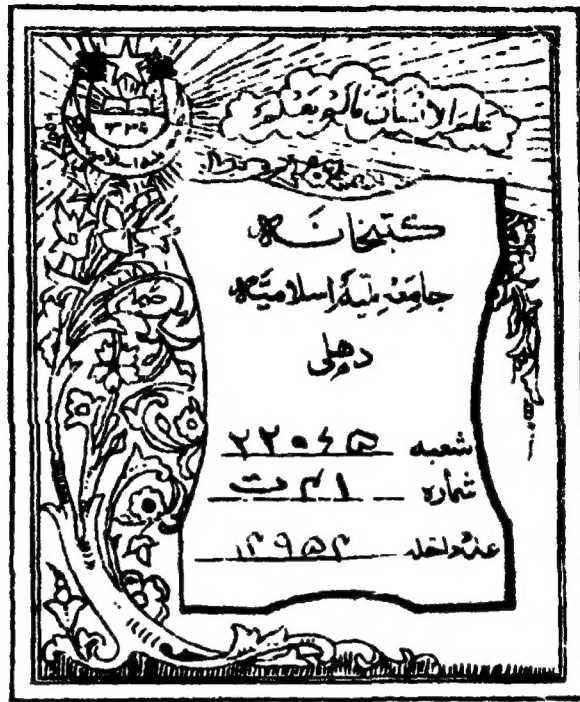 علم الانسان مالم یعلم
کتبخانہ
جامعہ ملیہ اسلامیہ
دہلی
شعبہ ۲۲۰۶۵
شمارہ ۱ م ت
عدد داخلہ ۱۴۹۵۴